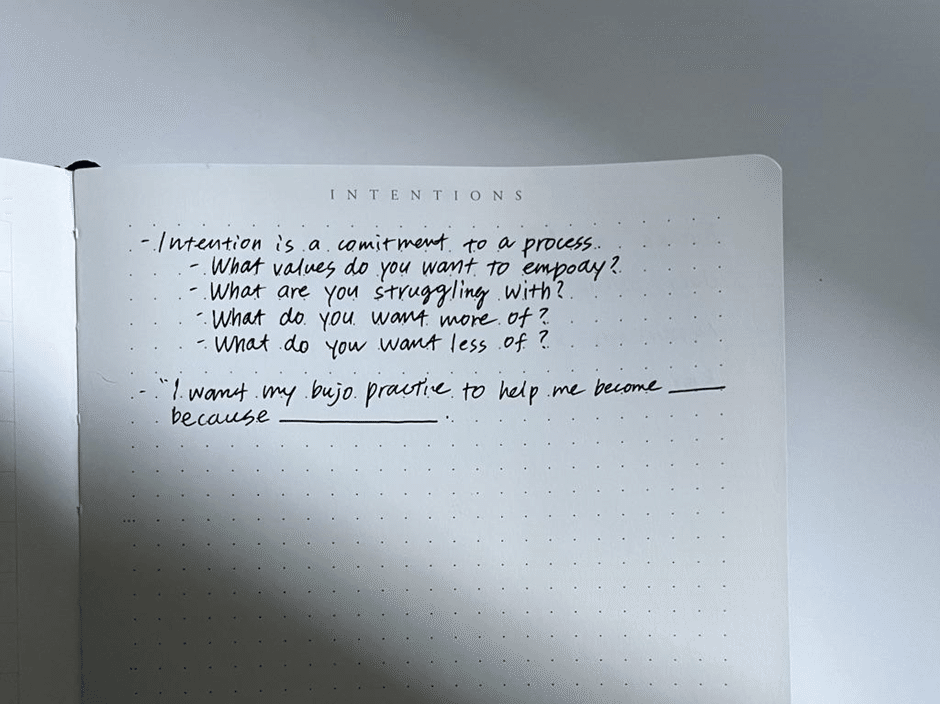 INTENTIONS
- Intention is a comitment to a process.
- What values do you want to empody?
- What are you struggling with?
- What do you want more of?
- What do you want less of?
- "I want my bujo practice to help me become ____
because ________.